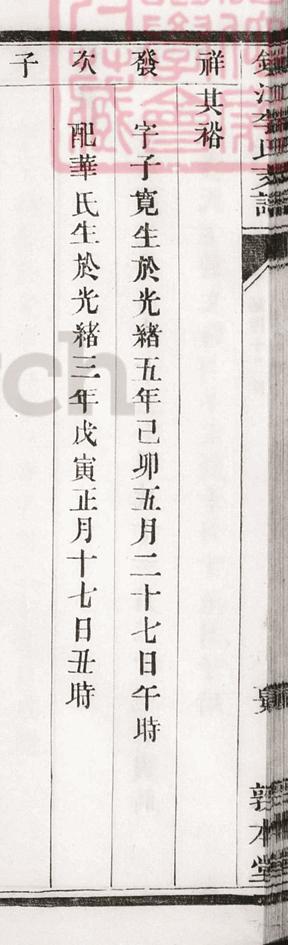 李氏支譜
敦本堂
祥其裕
發
字子寬生於光緒五年己卯五月二十七日午時
次
配華氏生於光緒三年戊寅正月十七日丑時
子
rch